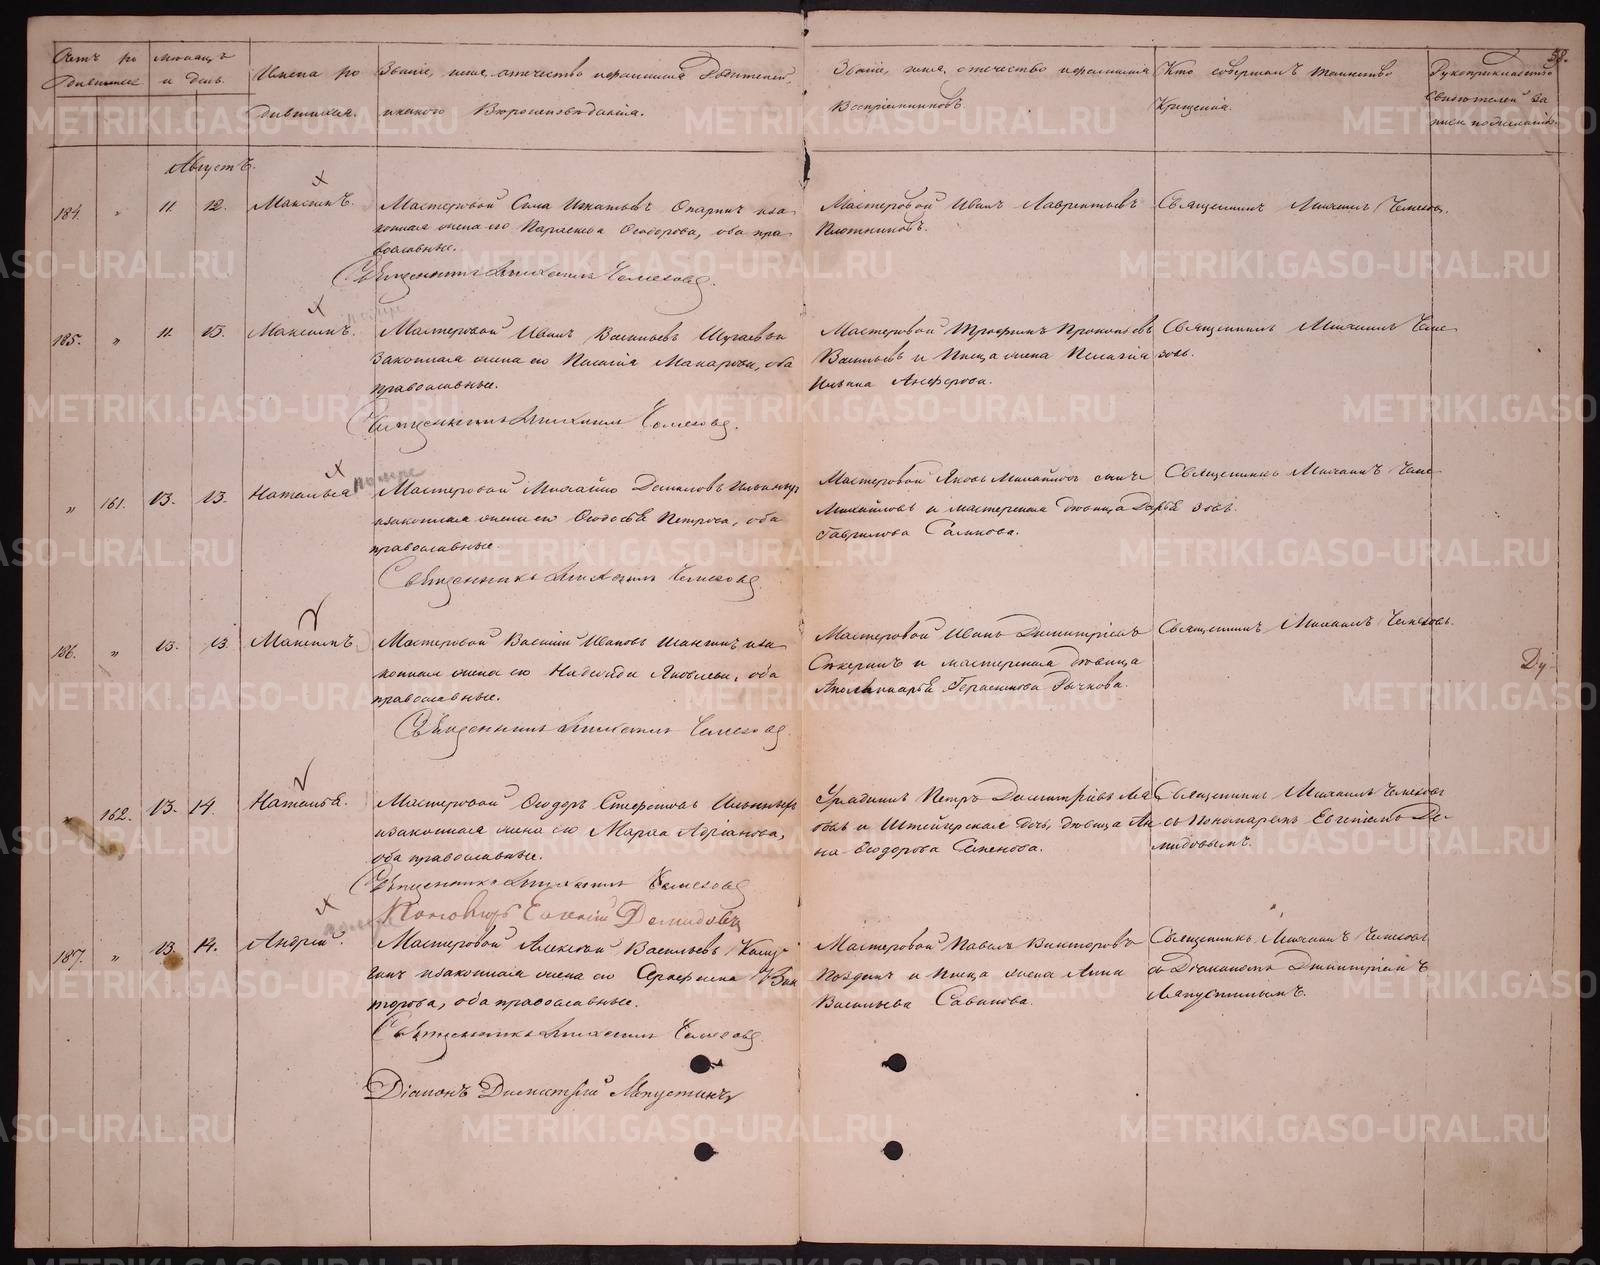 Счетъ ро
дившихся
мѣсяцъ
и день.
Имена ро
дившихся.
Званіе, имя, отчество и фамилія Родителей,
и какого Вѣроисповѣданія.
Званіе, имя, отчество и фамилія
Воспріемниковъ.
Кто совершалъ таинство
Крещенія.
Рукоприкладство
свидѣтелей за
писи по желанію.
58.
Августъ.
184. " 11. 12. Максимъ.
Мастеровой Сила Игнатьевъ Опаринъ и за
конная жена его Параскева Ѳеодорова, оба пра
вославные.
Священникъ Михаилъ Чемезовъ.
Мастеровой Иванъ Лаврентьевъ
Плотниковъ.
Священникъ Михаилъ Чемезовъ.
185. " 11. 15. Максимъ.
Мастеровой Иванъ Васильевъ
законная жена его Пелагія Макарова, оба
православные.
Священникъ Михаилъ Чемезовъ.
Мастеровой Трофимъ Прокопьевъ
Васильевъ и Писца жена Пелагія
Ильина Анферова.
Священникъ Михаилъ Чеме
зовъ.
" 161. 13. 13. Наталья
помре
Мастеровой Михайло Даниловъ Ильиныхъ
и законная жена его Ѳеодосья Петрова, оба
православные.
Священникъ Михаилъ Чемезовъ.
Мастеровой Яковъ
Михайловъ и мастерская дѣвица Дарья
Гаврилова Салинова.
Священникъ Михаилъ Чеме
зовъ.
186. " 13. 13. Максимъ
Мастеровой Василій Ивановъ Шангинъ и за
конная жена его Надежда Яковлева, оба
православные.
Священникъ Михаилъ Чемезовъ.
Мастеровой Иванъ Димитріевъ
и мастерская дѣвица
Аполлинарья Герасимова Рычкова.
Священникъ Михаилъ Чемезовъ.
Ду-
" 162. 13. 14. Наталья.
Мастеровой Ѳеодоръ Стефановъ Ильиныхъ
и законная жена его Марѳа Адріанова,
оба православные.
Священникъ Михаилъ Чемезовъ
Пономарь Евгеній Демидовъ
Урядникъ Петръ Димитріевъ
и Штейгерская дочь, дѣвица Ан
на Ѳеодорова Семенова.
Священникъ Михаилъ Чемезовъ
съ Пономаремъ Евгеніемъ Де-
мидовымъ.
187. " 13. 14. Андрей.
Мастеровой Алексѣй Васильевъ
и законная жена его Серафима Вик
торова, оба православные.
Священникъ Михаилъ Чемезовъ
Діаконъ Димитрій Лапустинъ
Мастеровой Павелъ Викторовъ
Поздинъ и Писца жена Анна
Васильева Савинова.
Священникъ Михаилъ Чемезовъ
съ Діакономъ Димитріемъ
Лапустинымъ.
METRIKI.GASO-URAL.RU